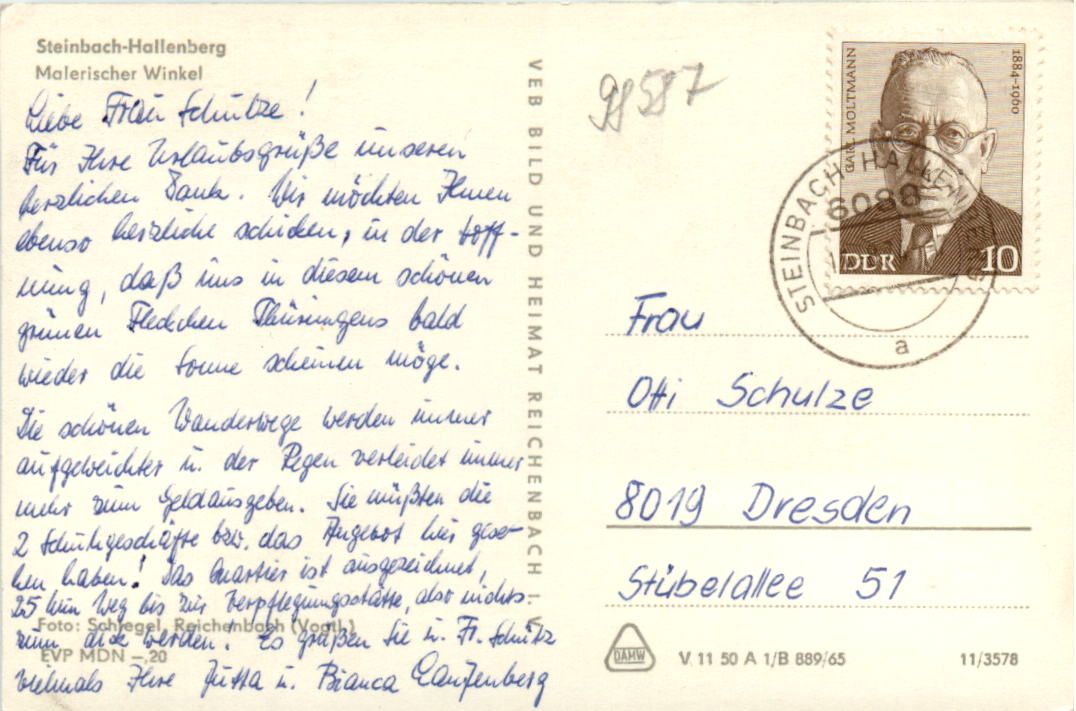 Steinbach-Hallenberg
Malerischer Winkel
Liebe Frau Schulze!
Für Ihre Urlaubsgrüße unseren
herzlichen Dank. Wir möchten Ihnen
ebenso herzliche schicken, in der Hoff-
nung, daß uns in diesem schönen
grünen Fleckchen Thüringens bald
wieder die Sonne scheinen möge.
Die schönen Wanderwege werden immer
aufgeweichter u. der Regen verleidet immer
mehr zum Geldausgeben. Sie müßten die
2 Schuhgeschäfte bzw. das Angebot hier gese-
hen haben! Das Quartier ist ausgezeichnet,
25 min Weg bis zur Verpflegungsstätte, also nichts
zum dick werden! Es grüßen Sie u. Fr. Schütz
vielmals Ihre Jutta u. Bianca
Foto: Schlegel, Reichenbach (Vogtl.)
EVP MDN –,20
VEB BILD UND HEIMAT REICHENBACH I. V.
98587
CARL MOLTMANN
1884-1960
DDR 10
STEINBACH-HALLENBERG
6088
a
Frau
Otti Schulze
8019 Dresden
Stübelallee 51
DAMW
V 11 50 A 1/B 889/65
11/3578